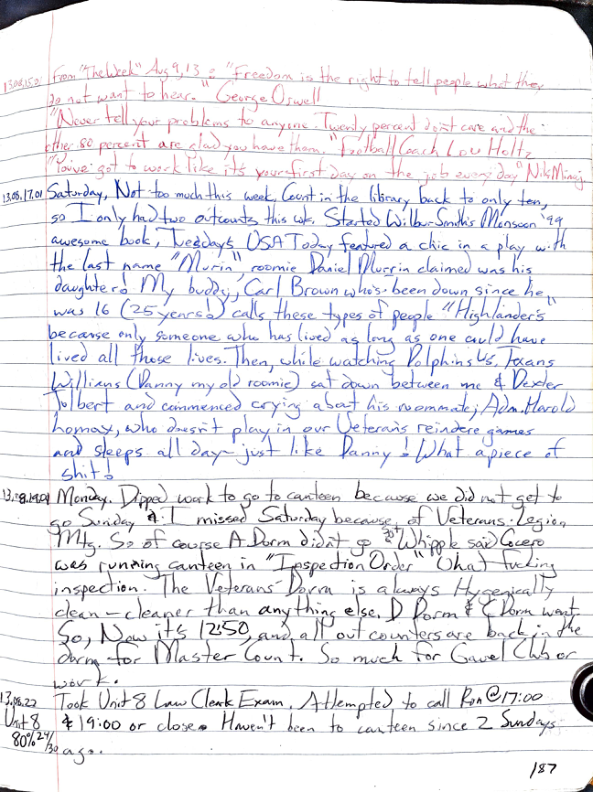 13.08.15.01 From "The Week" Aug 9, 13: "Freedom is the right to tell people what they
do not want to hear." George Orwell
"Never tell your problems to anyone. Twenty percent don't care and the
other 80 percent are glad you have them." Football Coach Lou Holtz
"You've got to work like it's your first day on the job every day" Niki Minaj
13.08.17.01 Saturday, Not too much this week, Count in the library back to only ten,
so I only had two outcounts this wk. Started Wilbur Smith's Monsoon '99
awesome book, Tuesday's USA Today featured a chic in a play with
the last name "Murrin", roomie Daniel Murrin claimed was his
daughter! My buddy, Carl Brown who's been down since he
was 16 (25 years!) calls these types of people "Highlander's"
because only someone who has lived as long as one could have
lived all those lives. Then, while watching Dolphins vs. Texans
Willians (Danny my old roomie) sat down between me & Dexter
Tolbert and commenced crying about his roommate, Adm. Harold
Lomax, who doesn't play in our Veterans reindere games
and sleeps all day - just like Danny! What a piece of
shit!
13.8.19.01 Monday, Dipped work to go to canteen because we did not get to
go Sunday & I missed Saturday because of Veterans Legion
Mtg. So of course A Dorm didn't go Whipple said Cicero
was running canteen in "Inspection Order" What fucking
inspection. The Veterans Dorm is always Hygenically
clean - cleaner than anything else. D Dorm & C Dorm went
So, Now it's 12:50, and all out counters are back in the
dorm for Master Count. So much for Gavel Club or
work.
13.08.22 Took Unit 8 Law Clerk Exam, Attempted to call Ron @ 17:00
Unit 8 & 19:00 or close. Haven't been to canteen since 2 Sundays
80% 24/30 ago.
187